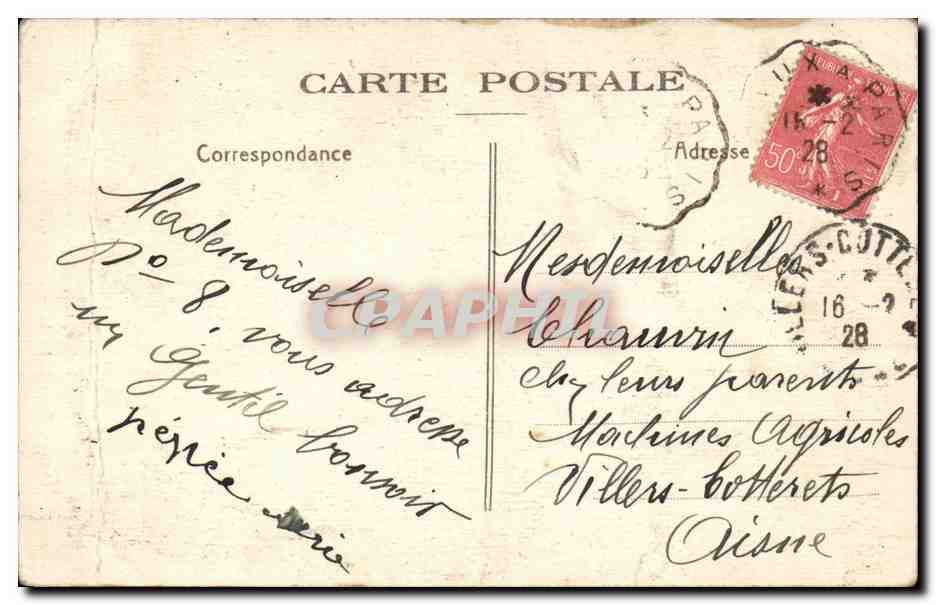 CARTE POSTALE
Correspondance
Mademoiselle
No 8, vous adresse
un Gentil bonsoir
Adresse
Mesdemoiselles
Chauvin
chez leurs parents
Machines Agricoles
Villers-Cotterets
Aisne
A PARIS
15 -2
28
50
PARIS
VILLERS-COTTE
16 -2
28
CPAPHIL